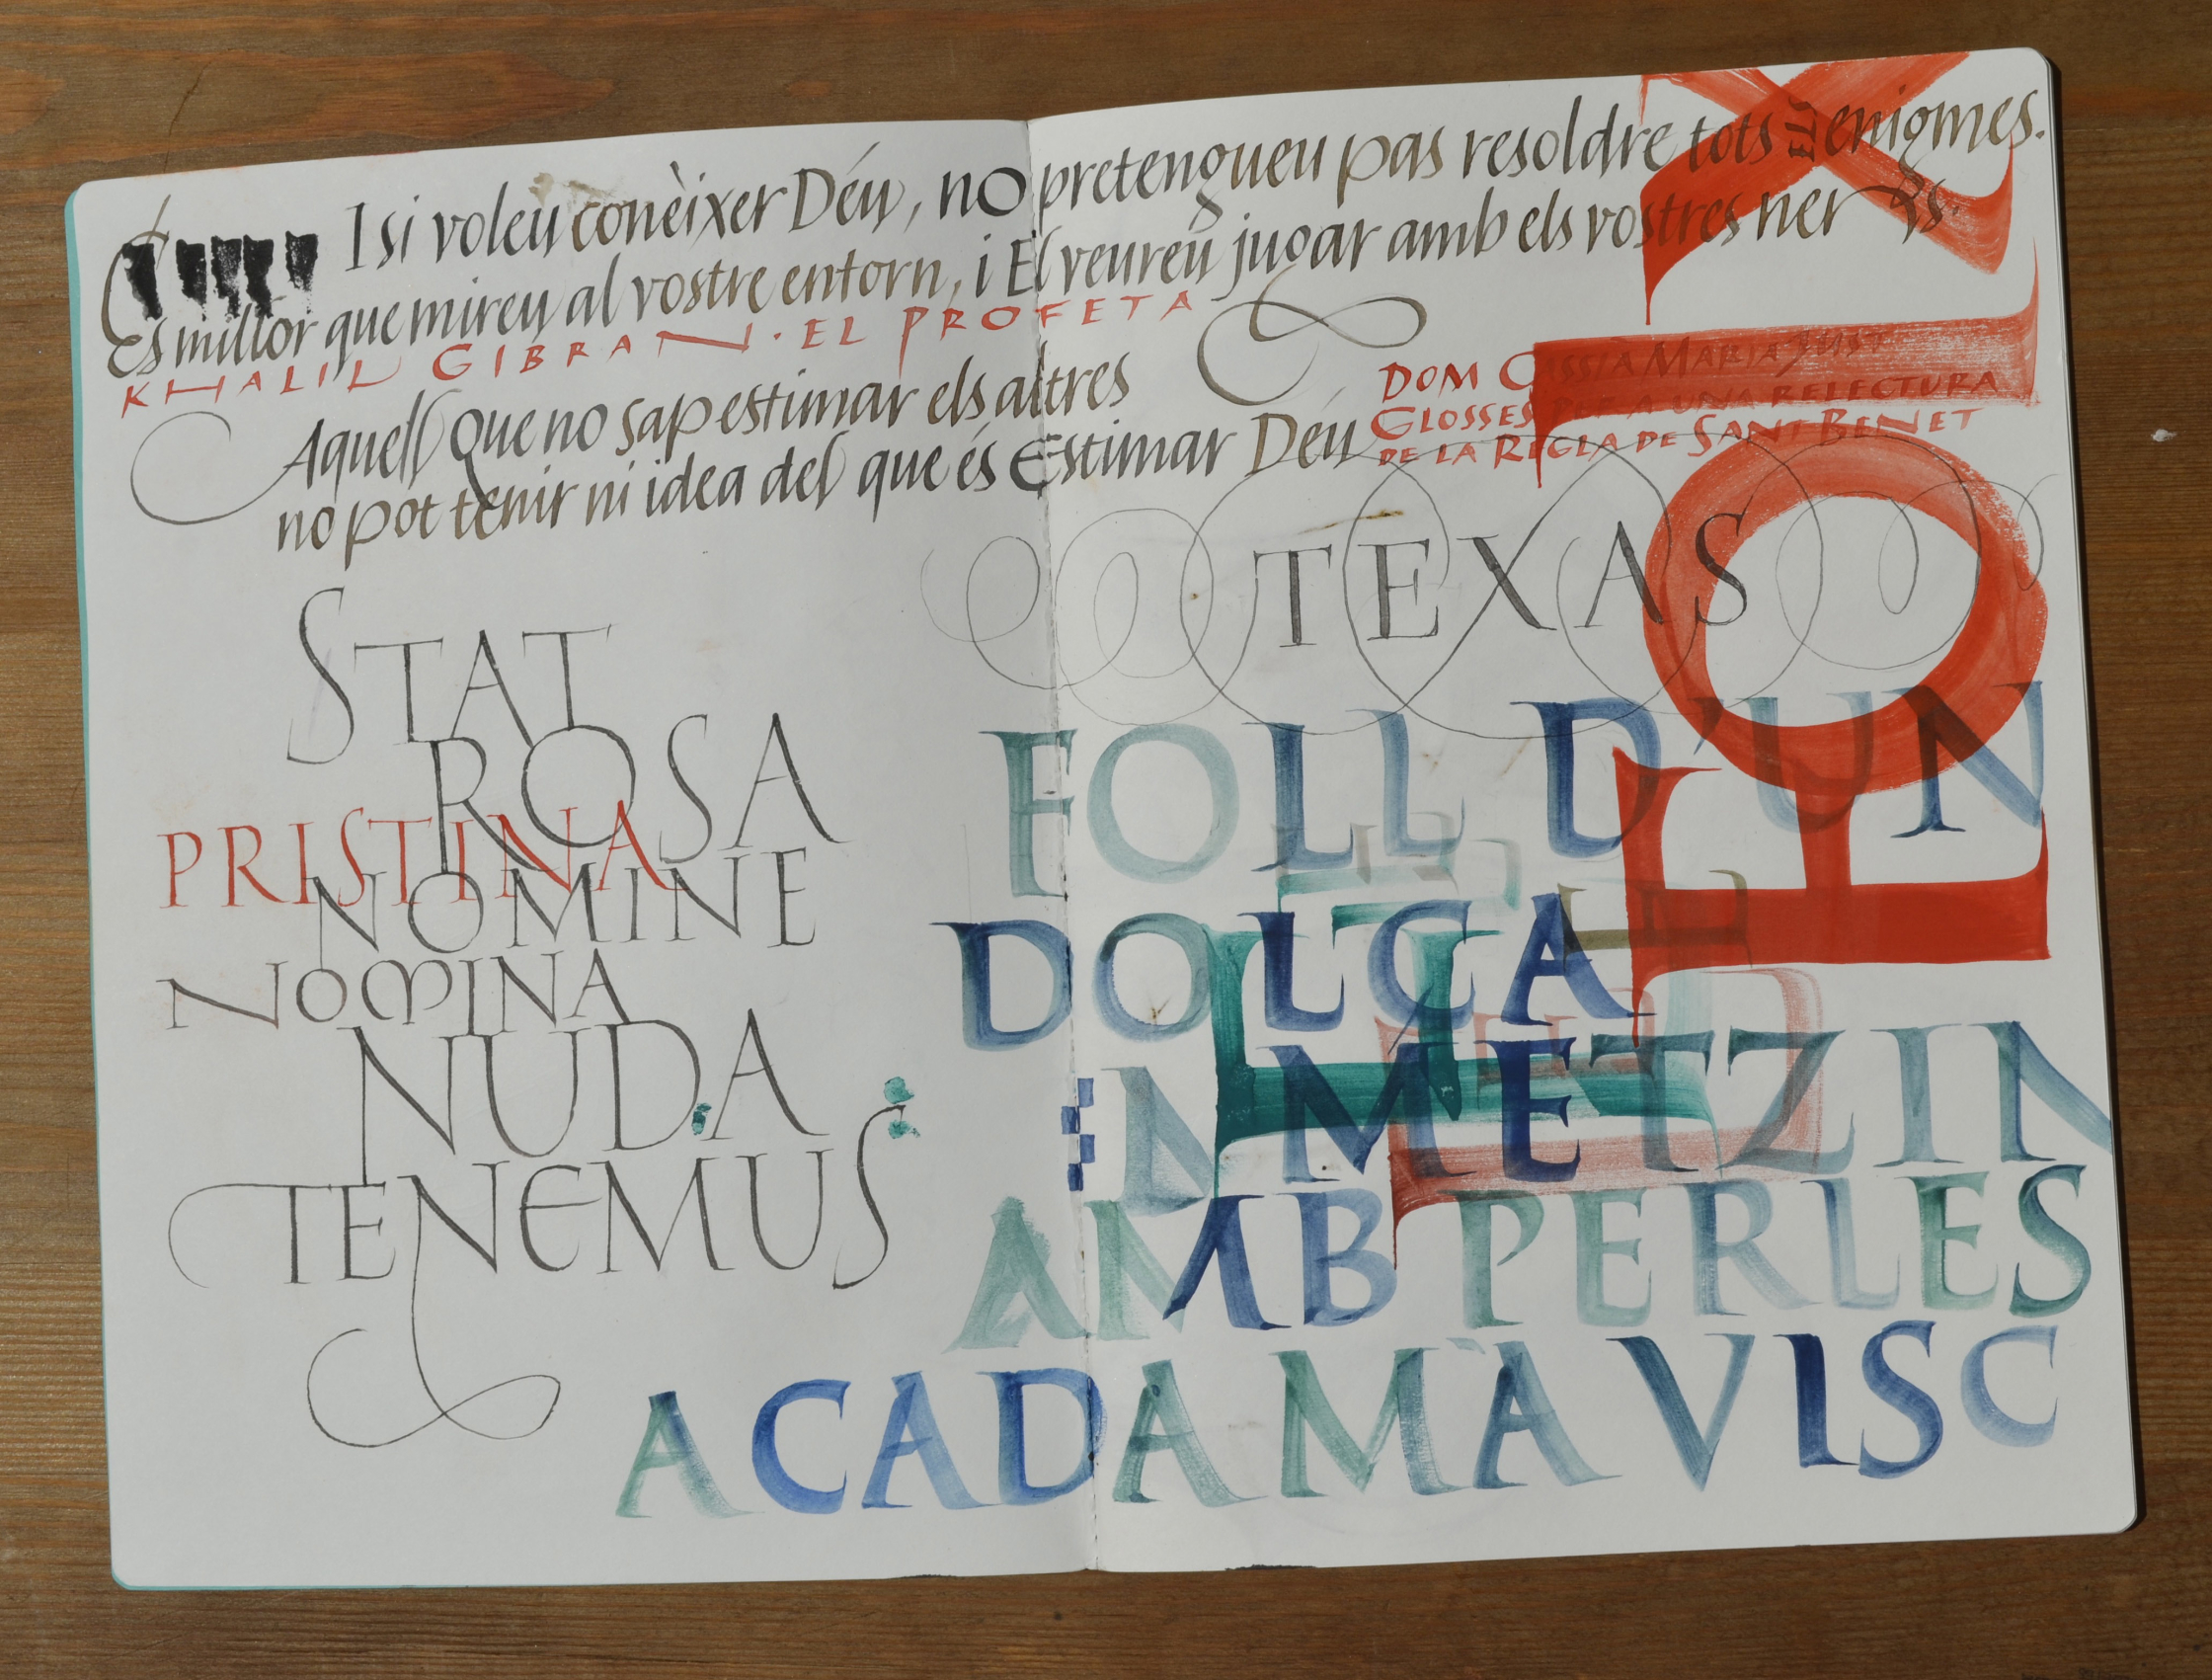 I si voleu conèixer Déu, no pretengueu pas resoldre tots els enigmes.
És millor que mireu al vostre entorn, i El veureu jugar amb els vostres
KHALIL GIBRAN · EL PROFETA
Aquell que no sap estimar els altres
no pot tenir ni idea del que és Estimar Déu
DOM CASSIÀ MARIA JUST
GLOSSES PER A UNA RELECTURA
DE LA REGLA DE SANT BENET
TEXAS
STAT
ROSA
PRISTINA
NOMINE
NOMINA
NUDA
TENEMUS
FOLL D'UN
DOLÇA
METZIN
AMB PERLES
A CADA MÀ VISC